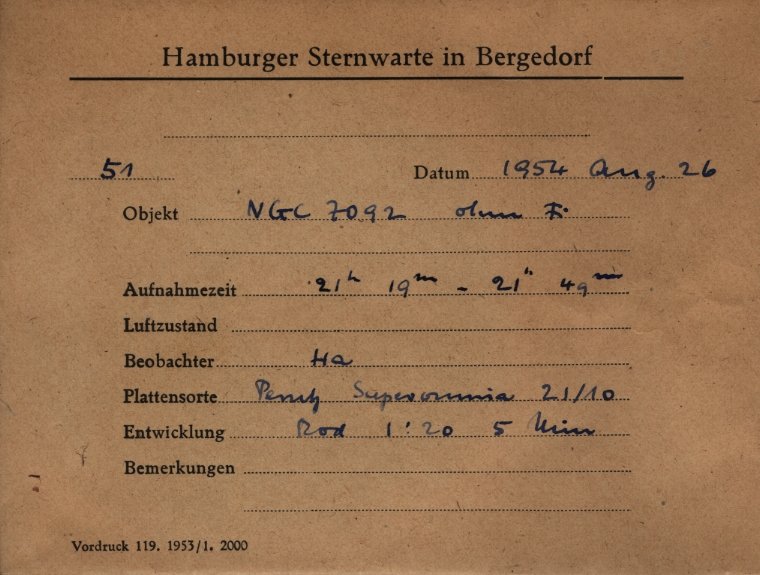 Hamburger Sternwarte in Bergedorf
51 Datum 1954 Aug. 26
Objekt NGC 7092 ohne F.
Aufnahmezeit 21h 19m - 21h 49m
Luftzustand
Beobachter Ha
Plattensorte Perutz Superomnia 21/10
Entwicklung Rod 1:20 5 Min
Bemerkungen
Vordruck 119. 1953/1. 2000